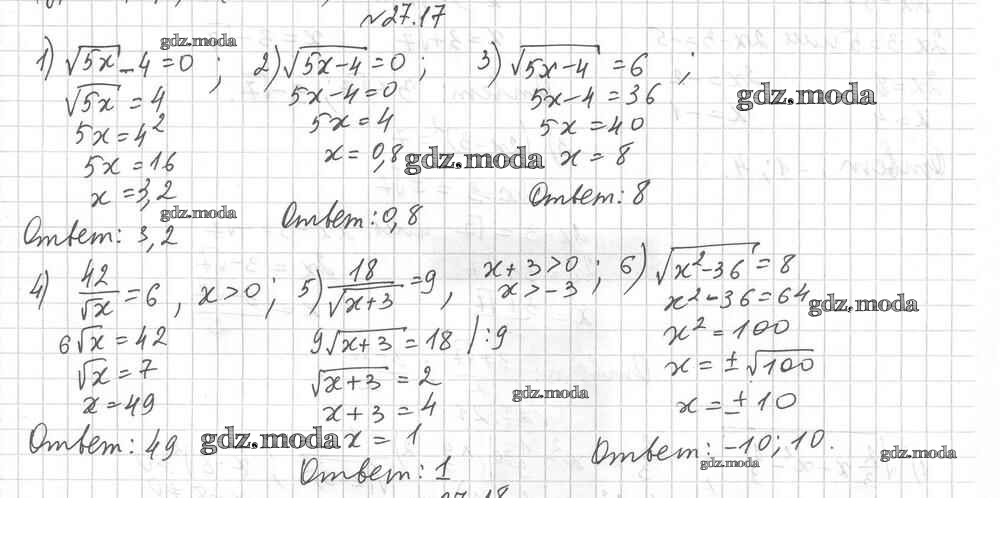 №27.17
1) √5x - 4 = 0 ;
√5x = 4
5x = 4²
5x = 16
x = 3,2
Ответ: 3,2
2) √5x-4 = 0 ;
5x-4=0
5x = 4
x = 0,8
Ответ: 0,8
3) √5x-4 = 6 ;
5x-4 = 36
5x = 40
x = 8
Ответ: 8
4) 42/√x = 6 , x > 0 ;
6√x = 42
√x = 7
x = 49
Ответ: 49
5) 18/√x+3 = 9 , x+3>0 ;
x > -3
9√x+3 = 18 |:9
√x+3 = 2
x+3 = 4
x = 1
Ответ: 1
6) √x²-36 = 8
x²-36 = 64
x² = 100
x = ±√100
x = ±10
Ответ: -10; 10.
gdz.moda
gdz.moda
gdz.moda
gdz.moda
gdz.moda
gdz.moda
gdz.moda
gdz.moda
gdz.moda